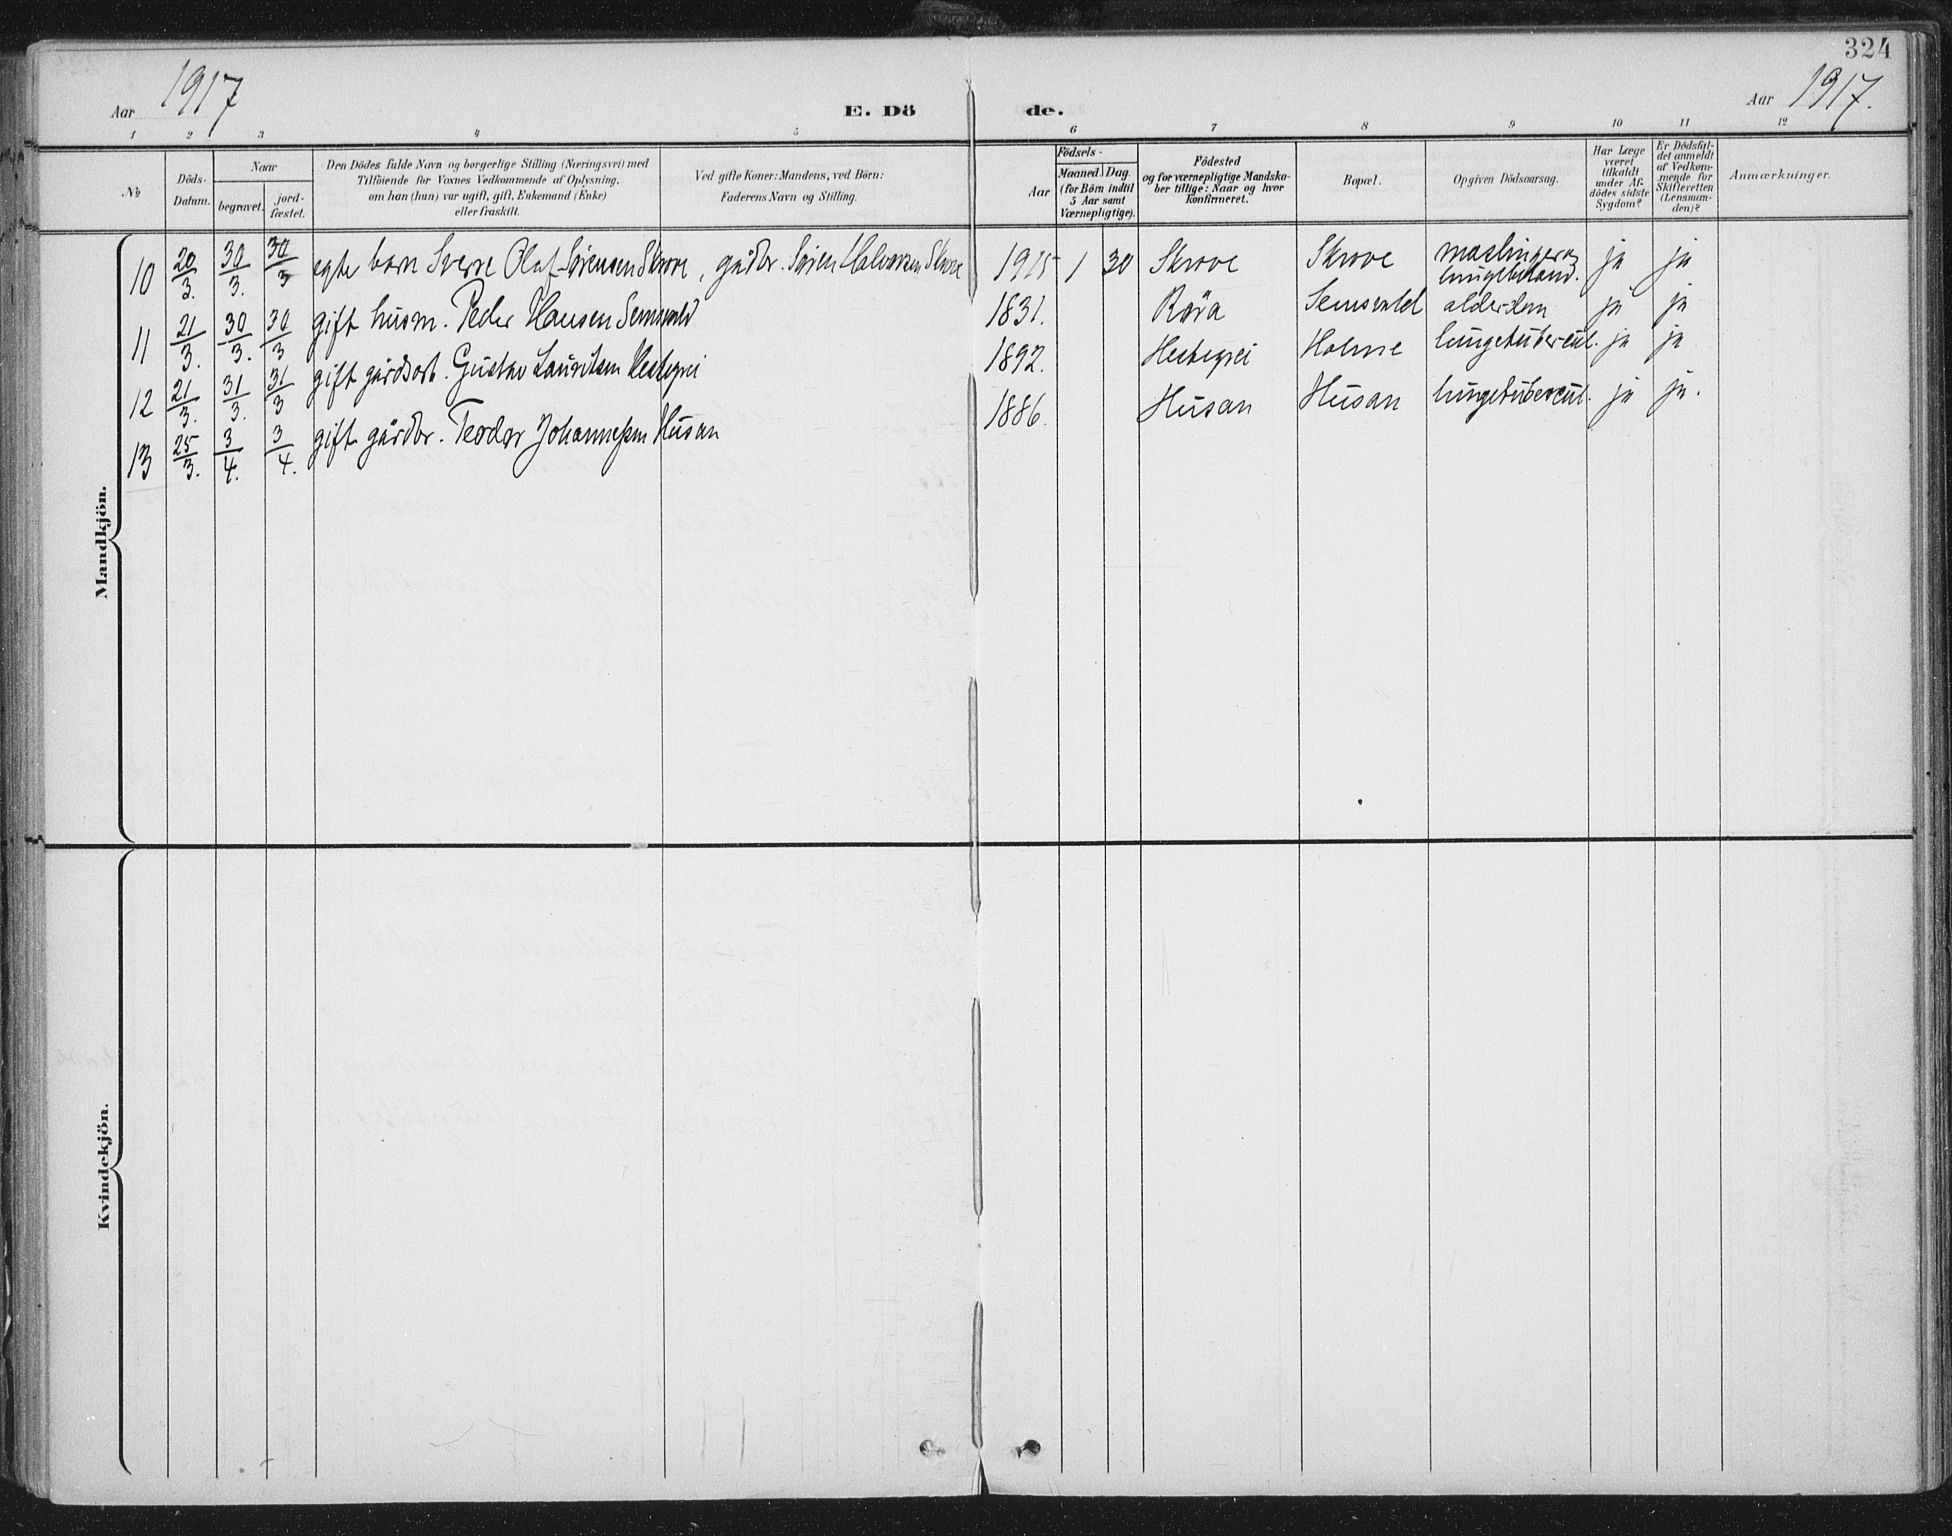 324
Aar 1917
E. Döde.
Aar 1917.
1 2 3 4 5 6 7 8 9 10 11 12
No
Döds-Datum.
Naar
begravet.
jordfæstet.
Den Dödes fulde Navn og borgerlige Stilling (Næringsvei) med
Tilföiende for Voxnes Vedkommende af Oplysning,
om han (hun) var ugift, gift, Enkemand (Enke)
eller fraskilt.
Ved gifte Koner: Mandens, ved Børn:
Faderens Navn og Stilling.
Födsels-
Aar
Maaned. Dag.
(for Børn indtil
5 Aar samt
Værnepligtige).
Födested
og for værnepligtige Mandska-
ber tillige: Naar og hvor
konfirmeret.
Bopæl.
Opgiven Dödsaarsag.
Har Læge
været
tilkaldt
under Af-
dödes sidste
Sygdom?
Er Dödsfal-
det anmeldt
af Vedkom-
mende for
Skifteretten
(Lensman-
den)?
Anmærkninger.
Mandkjön.
10 20/3. 30/3. 30/3 egte barn Sverre Olaf Sørensen Skrove, gårdbr. Søren Halvorsen Skrove 1915 1 30 Skrove Skrove maslinger og lungebetænd. ja ja
11 21/3. 30/3. 30/3 gift husm. Peder Hansen Semsvald 1831. Røra Semsvald alderdom ja ja
12 21/3. 31/3. 31/3 gift gårdsarb. Gustav Lauritsen Hestegrei 1892. Hestegrei Holme lungetubercul. ja ja
13 25/3. 3/4. 3/4. gift gårdbr. Teodor Johannessen Husan 1886. Husan Husan lungetubercul. ja ja.
Kvindekjön.